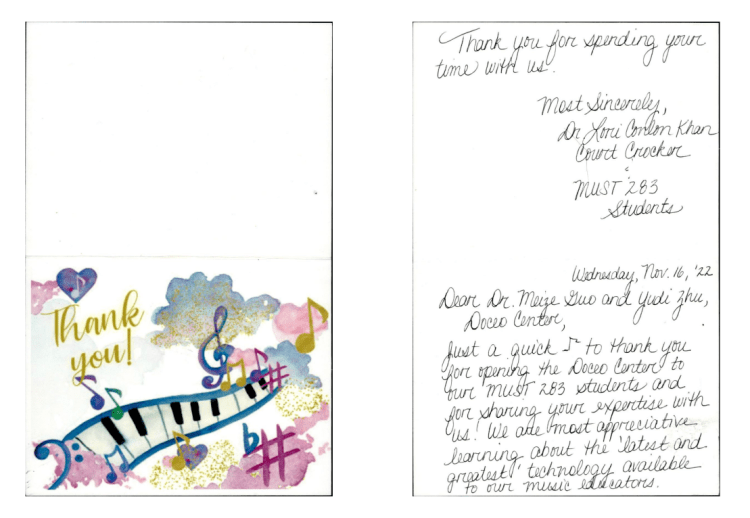 Thank you for spending your
time with us.
Most Sincerely,
Dr. Lori Conlon Khan
Court Crocker
&
MUST 283
Students
Thank
you!
Wednesday, Nov. 16, '22
Dear Dr. Meize Guo and Yudi Zhu,
Doceo Center,
Just a quick ♫ to thank you
for opening the Doceo Center to
our MUST 283 students and
for sharing your expertise with
us! We are most appreciative
learning about the 'latest and
greatest' technology available
to our music educators.